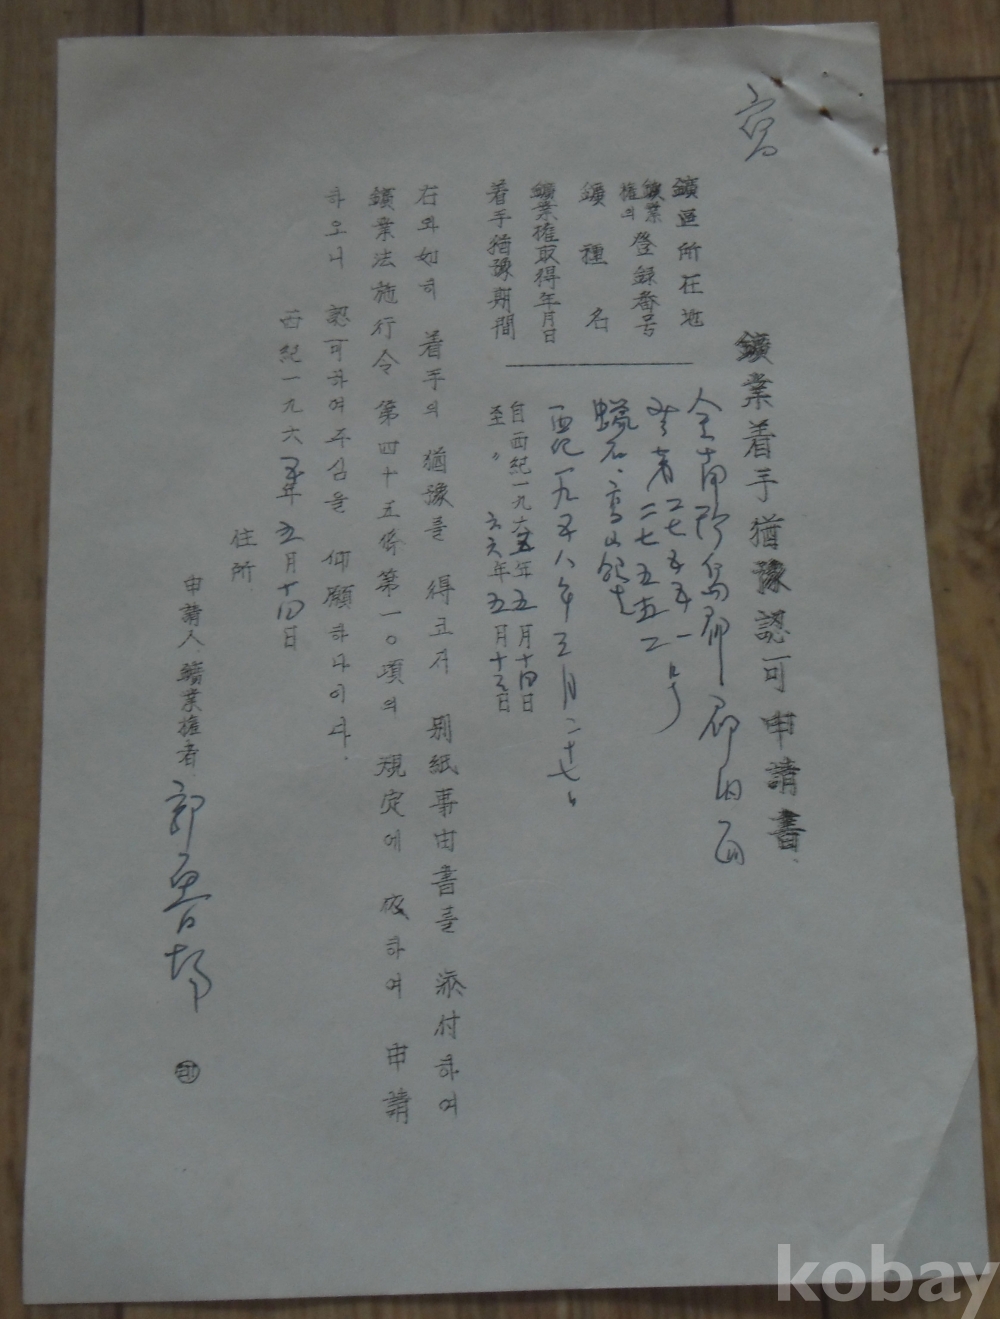 寫
鑛業着手猶豫認可申請書
鑛區所在地 全南珍島郡 郡內面
鑛業權의登録番号 二七五五一号 二七五五二
鑛種名 蠟石、高岭土
鑛業權取得年月日 西紀一九五八年三月二十七日
着手猶豫期間 自西紀一九六五年五月十四日
至〃 六六年五月十三日
右와如히 着手의 猶豫를 得코저 別紙事由書를 添付하여
鑛業法施行令 第四十五條第一〇項의 規定에 依하여 申請
하오니 認可하여주심을 仰願하나이다.
西紀一九六五年五月十四日
住所
申請人 鑛業權者 郭 印
kobay